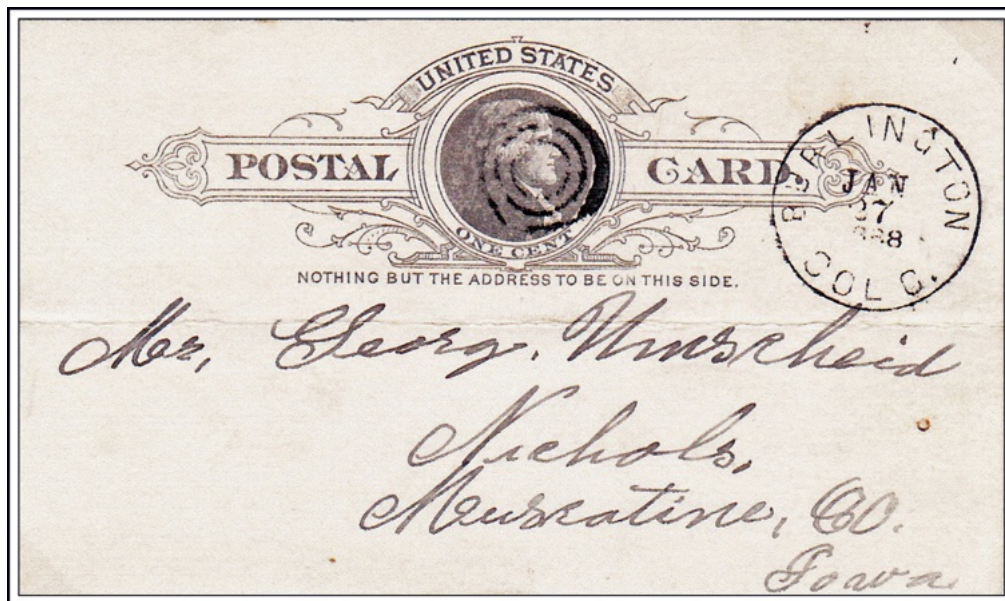 UNITED STATES
POSTAL CARD.
ONE CENT
NOTHING BUT THE ADDRESS TO BE ON THIS SIDE.
BURLINGTON
JAN
27
888
COLO.
Mr. Georg. Umscheid
Nichols,
Muscatine, Co.
Iowa